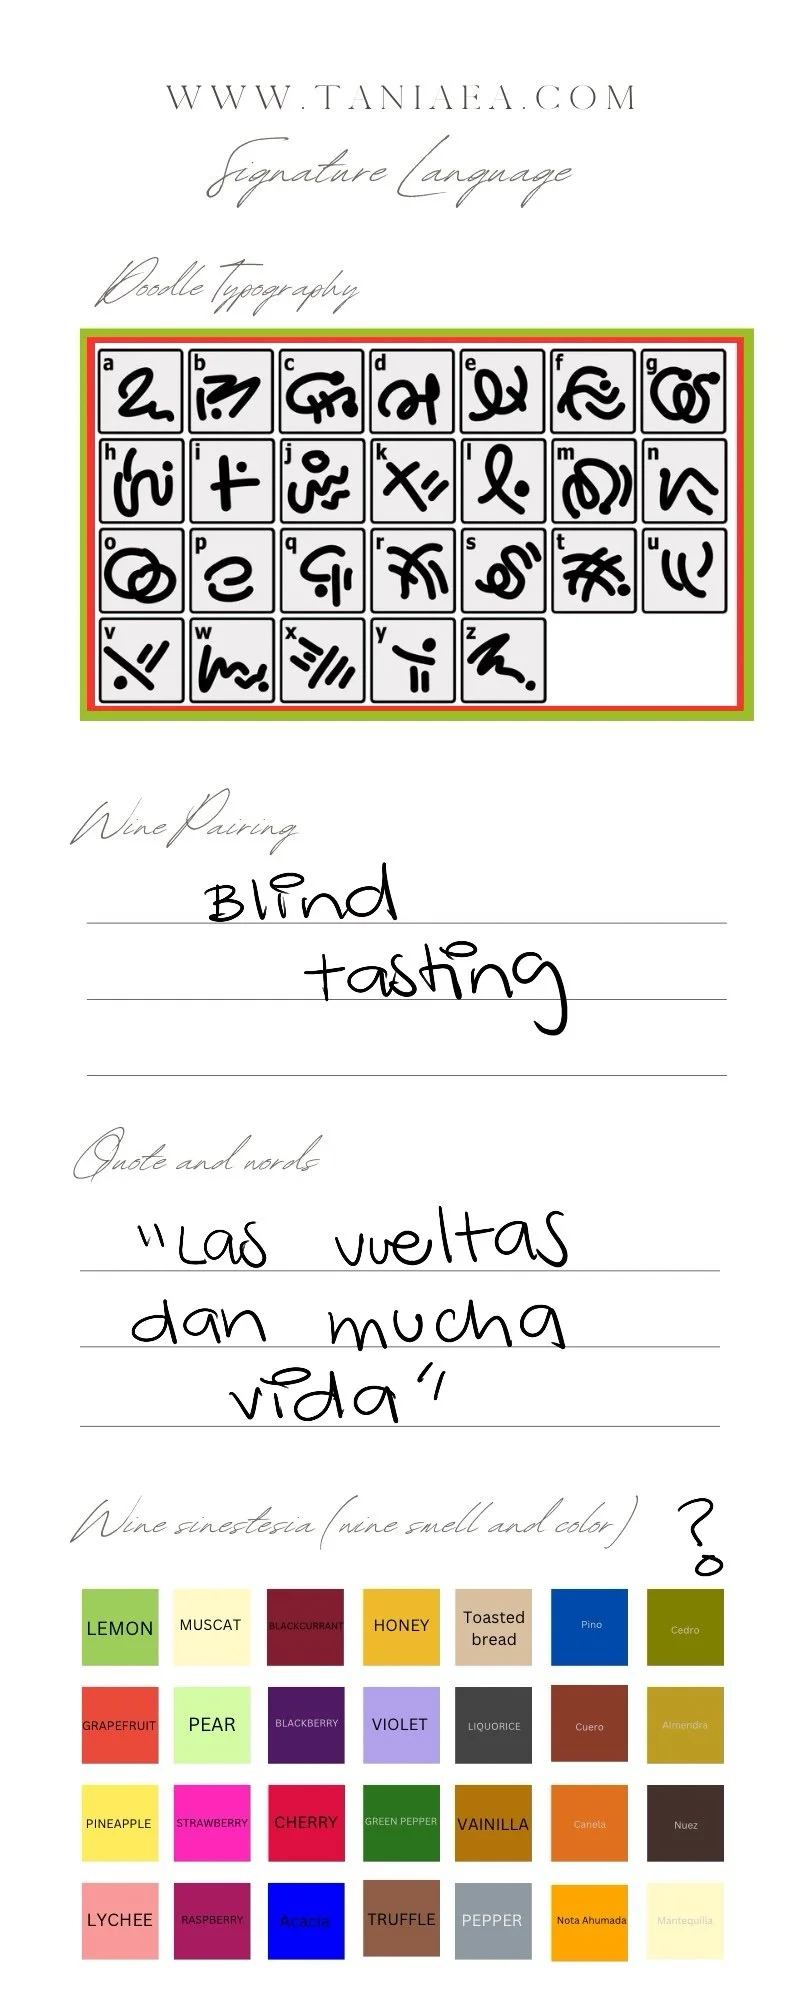 WWW.TANIAEA.COM
Signature Language
Doodle Typography
a b c d e f g
h i j k l m n
o p q r s t u
v w x y z
Wine Pairing
Blind
tasting
Quote and words
"Las vueltas
dan mucha
vida"
Wine sinestesia (nine smell and color) ?
LEMON MUSCAT BLACKCURRANT HONEY Toasted bread Pino Cedro
GRAPEFRUIT PEAR BLACKBERRY VIOLET LIQUORICE Cuero Almendra
PINEAPPLE STRAWBERRY CHERRY GREEN PEPPER VAINILLA Canela Nuez
LYCHEE RASPBERRY Acacia TRUFFLE PEPPER Nota Ahumada Mantequilla